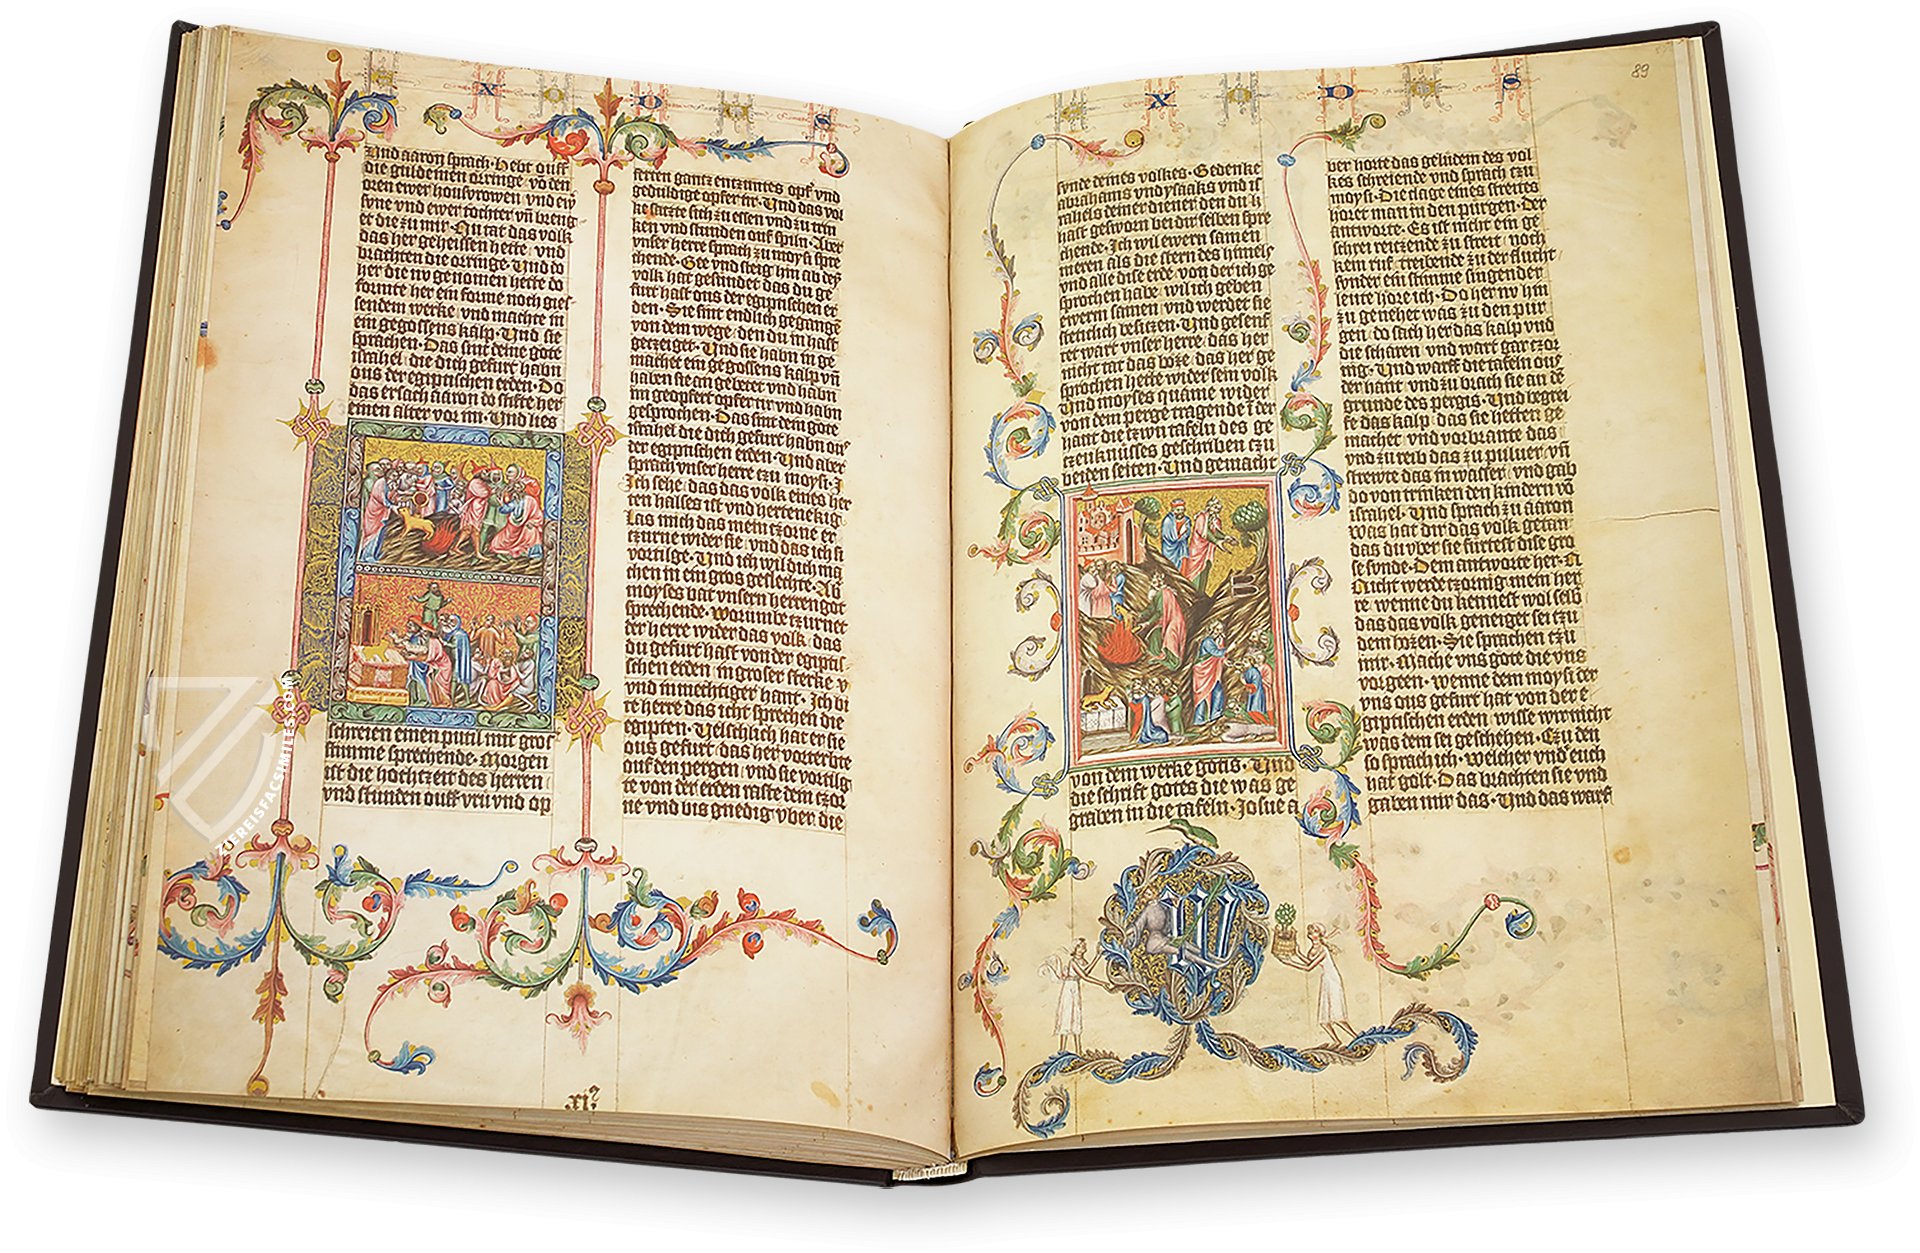 X O D U S
Und aaron sprach· Hebt ouff
die guldeinen orringe vō den
oren ewer housvrowen und ewˀ
syne vnd ewer tochter vn̄ breng
et die zu mir· Nu tat das volk
das her geheissen hette vnd
brachten die orringe· Und do
her die nv genomen hette do
formte her ein forme noch gies
sendem werke vnd machte in
ein gegossens kalp· Und sie
sprachen· Das sint deine gote
israhel die dich gefurt habn
ous der egiptischen erden· Do
das ersach aaron do stifte her
einen alter vor im· Und lies
schreien einen putil mit gros
stimme sprechende· Morgen
ist die hochtzeit des herren
vnd stunden ouff vru vnd op
ferten gantz entzuntes opfˀ vnd
geduldige opfer fir· Und das vol
ke satzte sich zu essen vnd zu trin
ken vnd stunden ouf spiln· Aber
vnser herre sprach zu moysi spre
chende· Gee vnd steig hin ab dey
volk hat gesundet das du ge
furt hast ous der egiptischen er
den· Sie sint endlich gegangē
von dem wege den du in hast
getzeiget· Und sie habn in ge
machet ein gegossens kalp vn̄
haben sie an gebetet vnd habn
im geopfert opfer vnd habn
gesprochen· Das sint dein gote
israhel die dich gefurt habn ous
der egiptischen erden· Und aber
sprach vnser herre tzu moysi· I
Ich sehe das das volk eines her
ten halses ist vnd hertenekig
Las mich das mein tzorne er
tzurne wider sie vnd das ich si
vortilge· Und ich wil dich ma
chen in ein gros geslechte· Ab
moyses bat vnsern herren got
sprechende· Worumbe tzurnet
der herre wider das volk das
du gefurt hast von der egiptis
schen erden in groser sterke v
vnd in mechtiger hant· Ich bi
te herre das icht sprechen die
egipten· Velschlich hat er sie
ous gefurt das her vorterbte
ouf den pergen vnd sie vortilg
te von der erden raste dein tzor
ne vnd bis gnedig vber die
xi9
X O D U S
89
sunde deines volkes· Gedenke
abrahams vnd ysaaks vnd is
rahels deiner diener den du h
hast gesworn bei dir selben spre
chende· Ich wil ewern samen
meren als die stern des himels
vnd alle dise erde von der ich ge
sprochen habe wil ich geben
ewerm samen vnd werdet sie
steticlich besitzen· Und gesenf
tet wart vnser herre das her
nicht tat das boze das her ge
sprochen hette wider sein volk
Und moyses quame wider
von dem perge tragende ī der
hant die tzwu tafeln des ge
tzenknüsses geschriben tzu
beiden seiten· Und gemacht
von dem werke gotis· Und
die schrift gotes die was ge
graben in die tafeln· Josue a
ber horte das gelüdem des vol
kes schreiende vnd sprach tzu
moysi· Die clage eines streites
horet man in den purgen· Der
antworte· Es ist nicht ein ge
schrei reitzende zu streit noch
kein ruf treibende zu der flucht
sunder ein stimme singender
leute hore ich· Do her nv hin
zu geneher was zu den pur
gen do sach her das kalp vnd
die scharen vnd wart gar tzor
nig· Und warff die tafeln ous
der hant vnd zu brach sie an dē
grunde des pergis· Und begrei
fe das kalp das sie hetten ge
machet vnd vorbrante das
vnd zu reib das zu puluer vn̄
sewte das in wasser vnd gab
do von trinken den kindern vō
israhel· Und sprach zu aaron
was hat dir das volk getan
das du vber sie furtest dise gro
se sunde· Dem antworte her· N
Nicht werde tzornig mein her
re wenne du kennest wol selb
das volk das geneiget sei tzu
dem bozen· Sie sprachen tzu
mir· Mache vns gote die vns
vorgeen· wenne dem moysi der
vns ous gefurt hat von der e
egiptischen erden wisse wir nicht
was dem sei geschehen· Tzu den
so sprach ich· welcher vnd euch
hat golt· Das brachten sie vnd
gaben mir das· Und das warf
W
ZIEREISFACSIMILES.COM